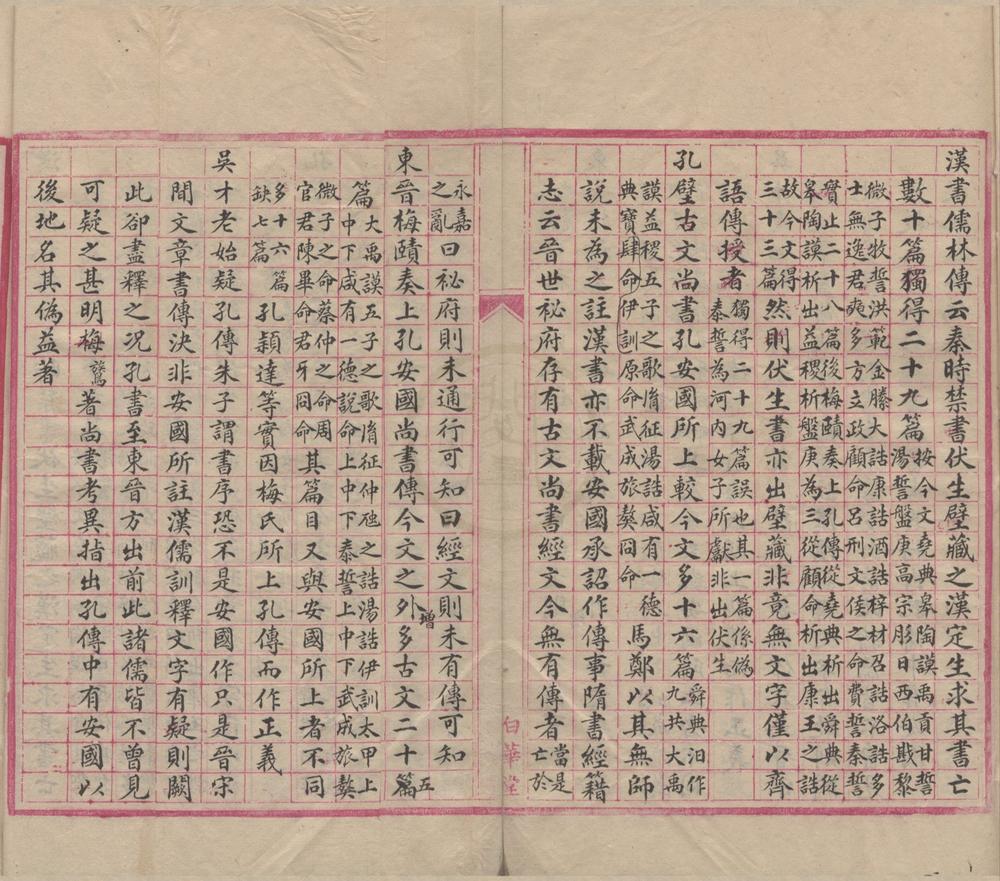 漢書儒林傳云秦時禁書伏生壁藏之漢定生求其書亡
數十篇獨得二十九篇按今文堯典皋陶謨禹貢甘誓
湯誓盤庚高宗肜日西伯戡黎
微子牧誓洪範金縢大誥康誥酒誥梓材召誥洛誥多
士無逸君奭多方立政顧命呂刑文侯之命費誓秦誓
實止二十八篇後梅賾奏上孔傳從堯典析出舜典從
皋陶謨析出益稷析盤庚為三從顧命析出康王之誥
故今文得
三十三篇然則伏生書亦出壁藏非竟無文字僅以齊
語傳授者獨得二十九篇誤也其一篇係偽
泰誓為河内女子所獻非出伏生
孔壁古文尚書孔安國所上較今文多十六篇舜典汨作
九共大禹
謨益稷五子之歌胤征湯誥咸有一德
典寶肆命伊訓原命武成旅獒冏命馬鄭以其無師
說未為之註漢書亦不載安國承詔作傳事隋書經籍
志云晉世秘府存有古文尚書經文今無有傳者當是
亡於
白華堂
永嘉
之亂曰秘府則未通行可知曰經文則未有傳可知
東晉梅賾奏上孔安國尚書傳今文之外增多古文二十五篇
篇大禹謨五子之歌胤征仲虺之誥湯誥伊訓太甲上
中下咸有一德說命上中下泰誓上中下武成旅獒
微子之命蔡仲之命周
官君陳畢命君牙冏命其篇目又與安國所上者不同
多十六篇
缺七篇孔穎達等實因梅氏所上孔傳而作正義
吳才老始疑孔傳朱子謂書序恐不是安國作只是晉宋
間文章書傳決非安國所註漢儒訓釋文字有疑則闕
此卻盡釋之況孔書至東晉方出前此諸儒皆不曾見
可疑之甚明梅鷟著尚書考異指出孔傳中有安國以
後地名其偽益著